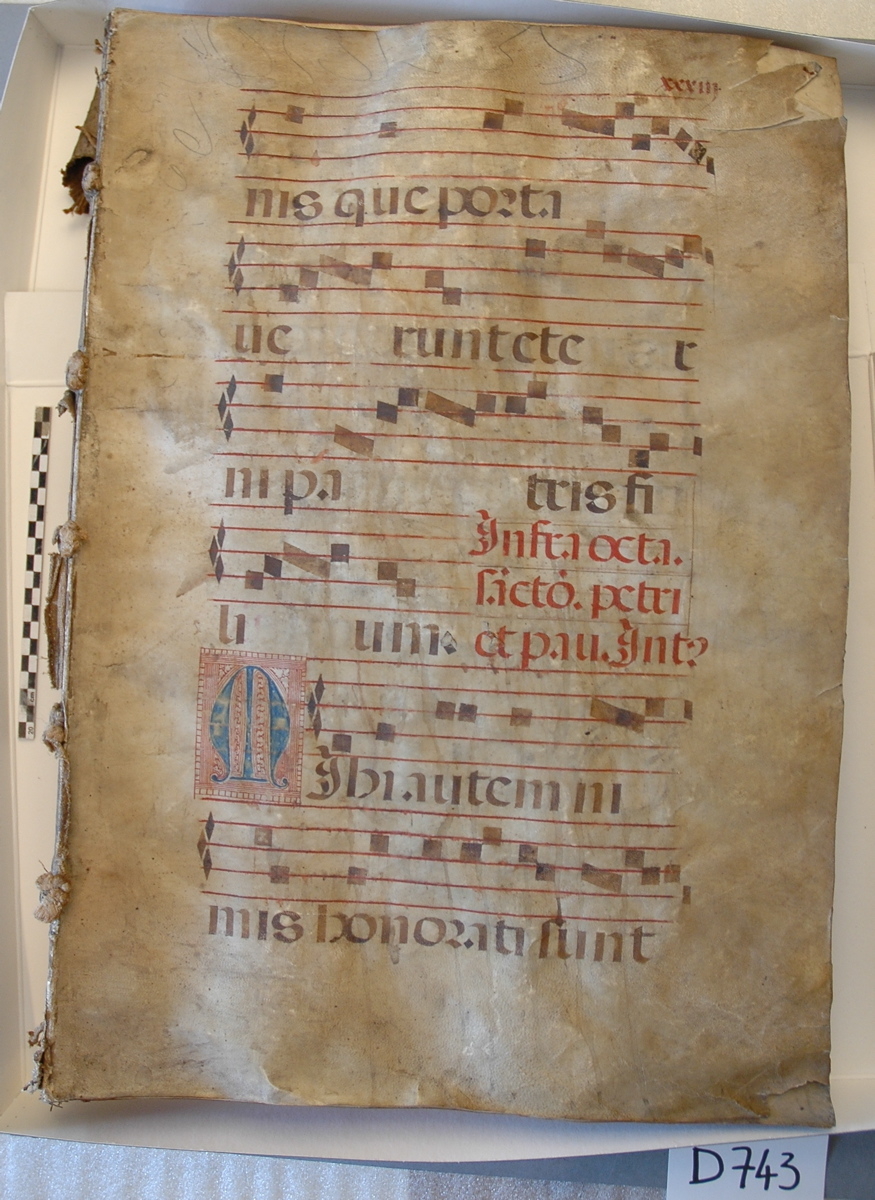 xxxiii
nis que porta
ue runt ete r
ni pa tris fi
Infra octa.
li um:
sācto. petri
et pau. Int?
M Ihi autem ni
mis honorati sunt
D743